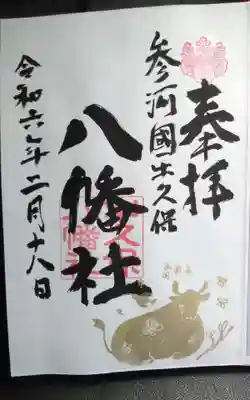 奉拝
参河國牛久保
八幡社
令和六年二月十八日